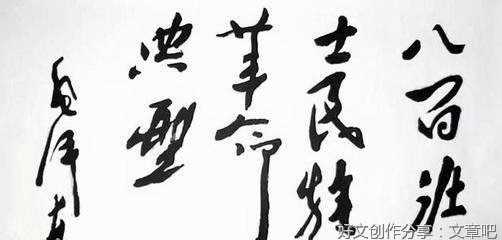 八百壮
士民族
革命
典型
毛泽东
好文创作分享：文章吧